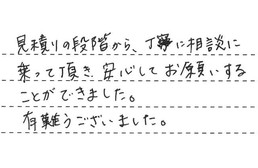 見積りの段階から、丁寧に相談に
乗って頂き安心してお願いする
ことができました。
有難うございました。